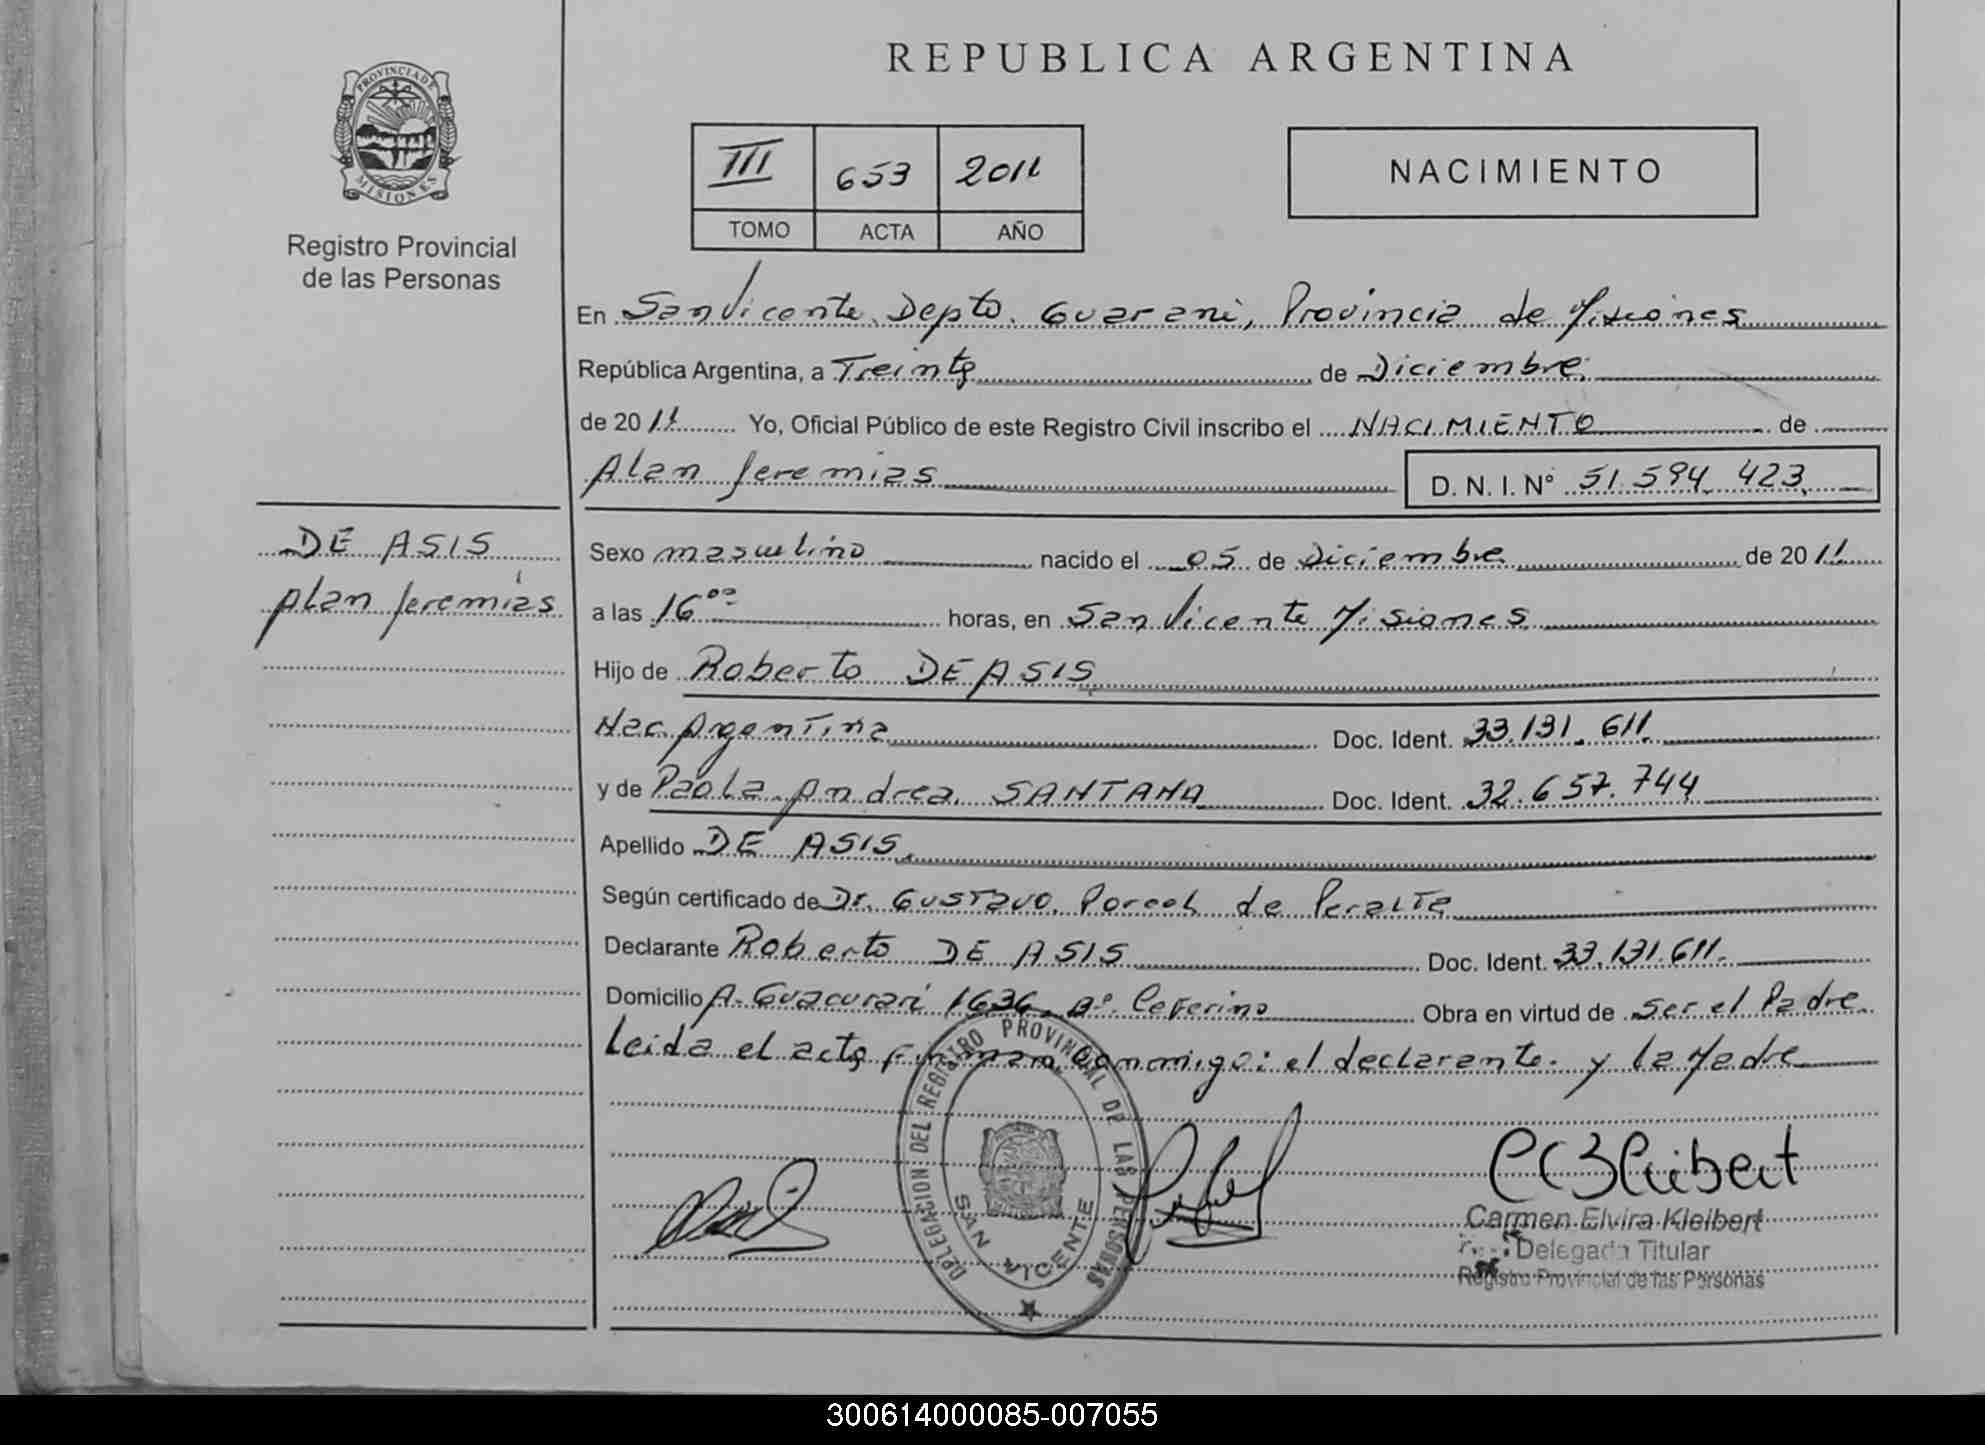 REPUBLICA ARGENTINA
PROVINCIA DE
MISIONES
Registro Provincial
de las Personas
III 653 2011
TOMO ACTA AÑO
NACIMIENTO
En San Vicente Depto. Guarani, Provincia de Misiones
República Argentina, a Treinta de Diciembre
de 2011 Yo, Oficial Público de este Registro Civil inscribo el NACIMIENTO de
Alan Jeremias D. N. I. Nº 51.594.423
DE ASIS
Alan Jeremias
Sexo masculino nacido el 05 de Diciembre de 2011
a las 16°° horas, en San Vicente Misiones
Hijo de Roberto DE ASIS
Nac. Argentina Doc. Ident. 33.131.611
y de Paola Andrea SANTANA Doc. Ident. 32.657.744
Apellido DE ASIS
Según certificado de Dr. Gustavo Porcel de Peralta
Declarante Roberto DE ASIS Doc. Ident. 33.131.611.
Domicilio A. Guacurari 1636 Bº. Ceferino Obra en virtud de ser el Padre
Leida el acta firman conmigo: el declarante y la Madre
DELEGACION DEL REGISTRO PROVINCIAL DE LAS PERSONAS
SAN VICENTE
Carmen Elvira Kleibert
Delegada Titular
Registro Provincial de las Personas
300614000085-007055